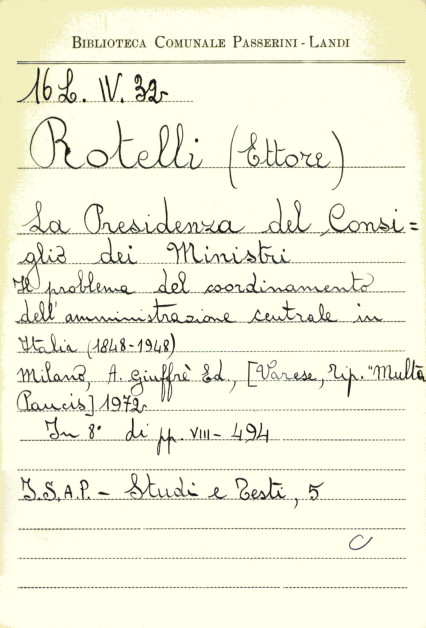 BIBLIOTECA COMUNALE PASSERINI - LANDI
16 L. IV. 32
Rotelli (Ettore)
La Presidenza del Consi=
glio dei Ministri
Il problema del coordinamento
dell'amministrazione centrale in
Italia (1848-1948)
Milano, A. Giuffrè Ed., [Varese, Tip. "Multa
Paucis] 1972
In 8° di pp. VIII - 494
I.S.A.P. - Studi e Testi, 5
C